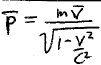 p̅ = mv̅ / √(1 - v²/c²)